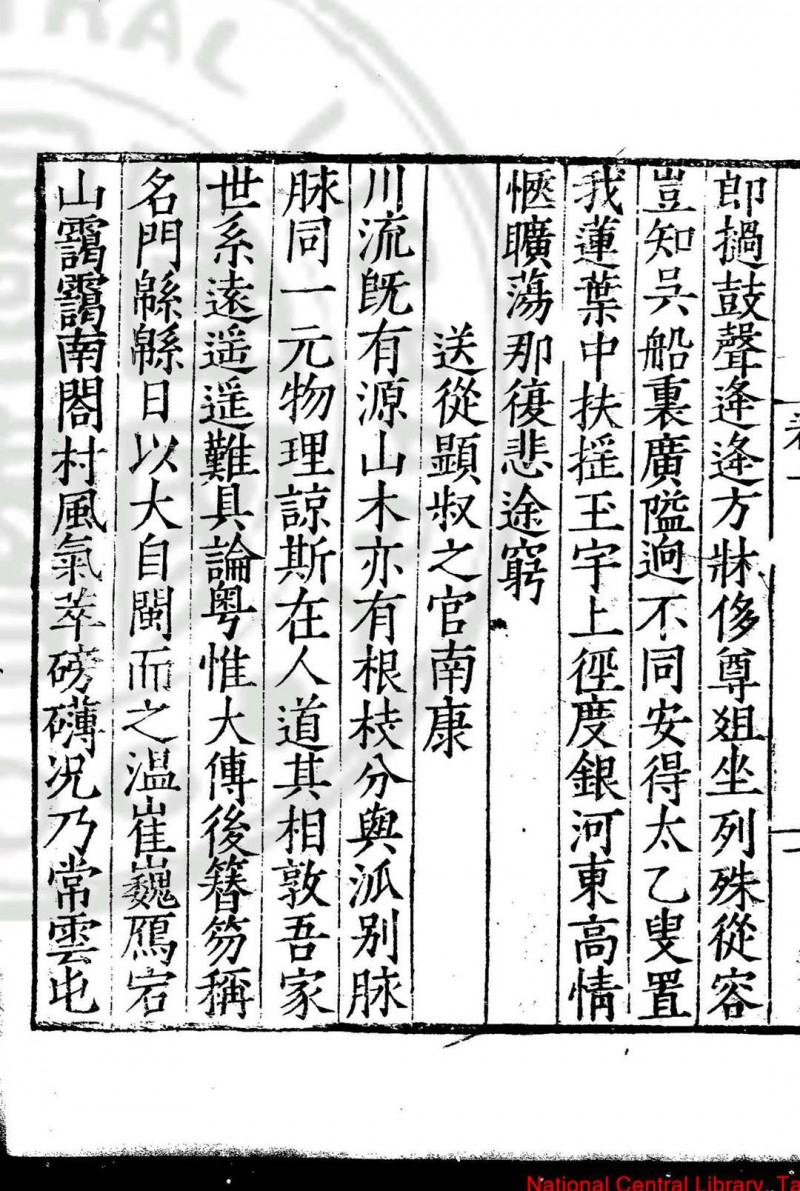 卷一
郎撾鼓聲逄逄方牀侈尊爼坐列殊從容
豈知吳船裏廣隘逈不同安得太乙叟置
我蓮葉中扶揺玉宇上徑度銀河東高情
愜曠蕩那復悲途窮
送從顯叔之官南康
川流旣有源山木亦有根枝分與泒别脉
脉同一元物理諒斯在人道其相敦吾家
世系遠遥遥難具論粤惟大傅後簮笏稱
名門緜緜日以大自閩而之温崔巍鴈宕
山靄靄南閤村風氣萃磅礴况乃常雲屯
National Central Library, Ta